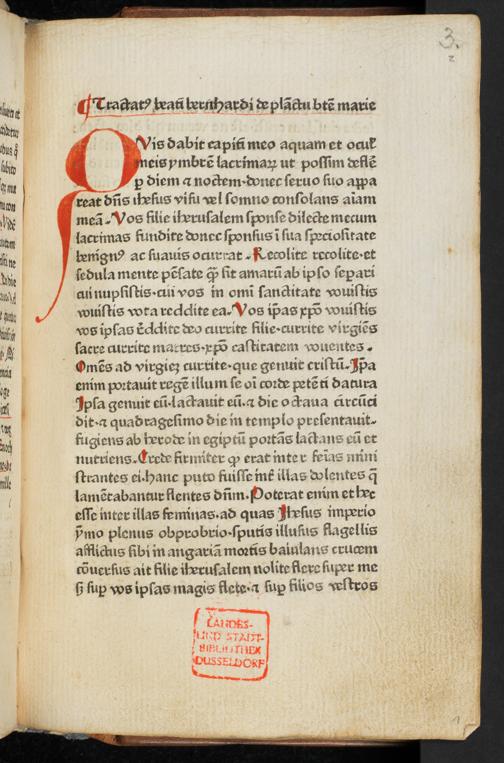 3.
2
¶ Tractatꝰ beati bernhardi de plāctu btē marie
QVis dabit capiti meo aquam et oculꝭ
meis ymbrē lacrimaꝝ ut possim deflē
ꝑ diem ⁊ noctem·donec seruo suo appa
reat dn̄s ihesus visu vel somno consolans aīam
meā·Vos filie iherusalem sponse dilecte mecum
lacrimas fundite donec sponsus ī sua speciositate
benignꝰ ac suauis ocurrat·Recolite recolite·et
sedula mente pēsate ꝙ sit amarū ab ipso separi
cui nupsistis·cui vos in omī sanctitate vouistis
vouistis vota reddite ea·Vos ip̄as xp̄o vouistis
vos ipsas reddite deo currite filie·currite virgīes
sacre currite matres·xp̄o castitatem vouentes·
Om̄es ad virgiez currite·que genuit cristū·Ip̄a
enim portauit regē illum se oī corde petēti datura
Ipsa genuit eū·lactauit eū·⁊ die octaua circūci
dit·⁊ quadragesimo die in templo presentauit·
fugiens ab herode in egiptū portās lactans eū et
nutriens·Crede firmiter ꝙ erat inter feīas mini
strantes ei·hanc puto fuisse int̄ illas dolentes q̄
lamētabantur flentes dn̄m·Poterat enim et hec
esse inter illas feminas·ad quas Ihesus imperio
ymo plenus obprobrio·sputis illusus flagellis
afflictus sibi in angariam mortis baiulans crucem
cōuersus ait filie iherusalem nolite flere super me
sꝫ suꝑ vos ipsas magis flete·⁊ suꝑ filios vestros
LANDES-
UND STADT-
BIBLIOTHEK
DÜSSELDORF